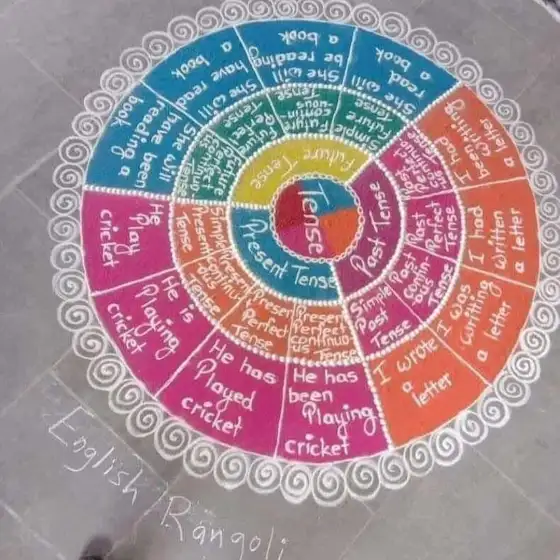 Tense
Present Tense
Simple
Present
Tense
He
Play
cricket
Present
continu
ous
Tense
He is
Playing
cricket
Present
Perfect
Tense
He has
Played
cricket
Present
Perfect
continuo
us Tense
He has
been
Playing
cricket
Past Tense
Simple
Past
Tense
I wrote
a
letter
Past
contin-
uous
Tense
I was
writting
a letter
Past
Perfect
Tense
I had
written
a letter
Past
Perfect
I had
been writting
a letter
Future Tense
Simple
Future
Tense
She will
read
a book
Future
contin
uous
Tense
She will
be reading
a book
Future
Perfect
Tense
She will
have read
a book
Future
Perfect
Tense
She will
have been
reading a
book
English Rangoli